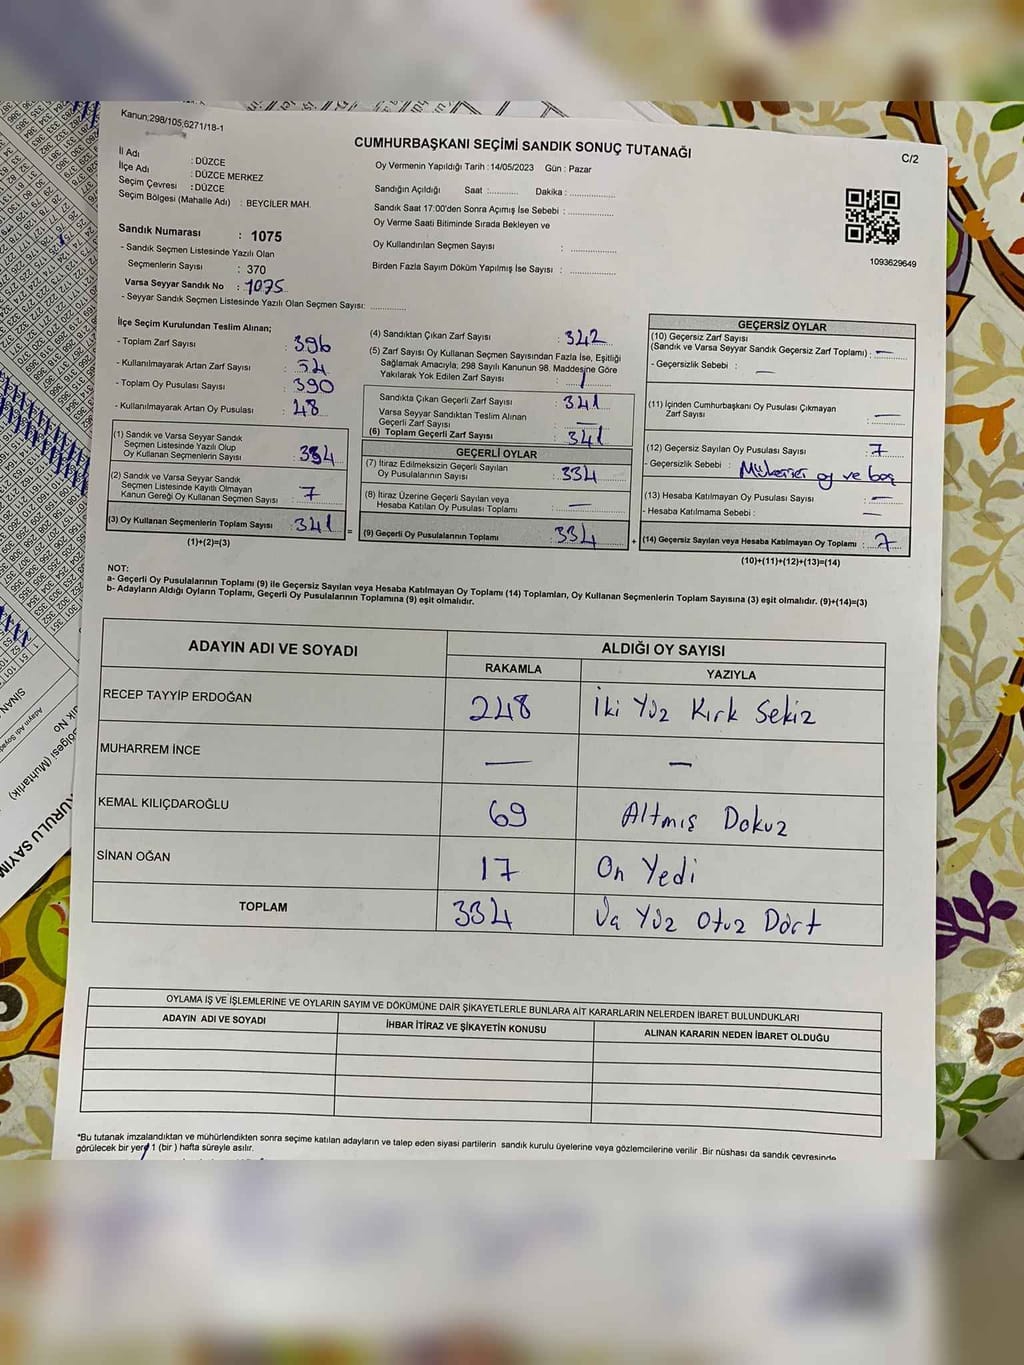 Kanun;298/105,6271/18-1
CUMHURBAŞKANI SEÇİMİ SANDIK SONUÇ TUTANAĞI
C/2
İl Adı : DÜZCE
İlçe Adı : DÜZCE MERKEZ
Seçim Çevresi : DÜZCE
Seçim Bölgesi (Mahalle Adı) : BEYCİLER MAH.
Oy Vermenin Yapıldığı Tarih : 14/05/2023 Gün : Pazar
Sandığın Açıldığı Saat :........... Dakika :................
Sandık Saat 17:00'den Sonra Açımış İse Sebebi :................
Oy Verme Saati Bitiminde Sırada Bekleyen ve
Oy Kullandırılan Seçmen Sayısı :................
Birden Fazla Sayım Döküm Yapılmış İse Sayısı :................
1093629649
Sandık Numarası : 1075
- Sandık Seçmen Listesinde Yazılı Olan
Seçmenlerin Sayısı : 370
Varsa Seyyar Sandık No : 1075
- Seyyar Sandık Seçmen Listesinde Yazılı Olan Seçmen Sayısı: .............
İlçe Seçim Kurulundan Teslim Alınan;
- Toplam Zarf Sayısı : 396
- Kullanılmayarak Artan Zarf Sayısı : 54
- Toplam Oy Pusulası Sayısı : 390
- Kullanılmayarak Artan Oy Pusulası : 48
(1) Sandık ve Varsa Seyyar Sandık
Seçmen Listesinde Yazılı Olup
Oy Kullanan Seçmenlerin Sayısı : 334
(2) Sandık ve Varsa Seyyar Sandık
Seçmen Listesinde Kayıtlı Olmayan
Kanun Gereği Oy Kullanan Seçmen Sayısı : 7
(3) Oy Kullanan Seçmenlerin Toplam Sayısı : 341
(1)+(2)=(3)
(4) Sandıktan Çıkan Zarf Sayısı : 342
(5) Zarf Sayısı Oy Kullanan Seçmen Sayısından Fazla İse, Eşitliği
Sağlamak Amacıyla, 298 Sayılı Kanunun 98. Maddesine Göre
Yakılarak Yok Edilen Zarf Sayısı : 1
Sandıkta Çıkan Geçerli Zarf Sayısı : 341
Varsa Seyyar Sandıktan Teslim Alınan
Geçerli Zarf Sayısı : —
(6) Toplam Geçerli Zarf Sayısı : 341
GEÇERLİ OYLAR
(7) İtiraz Edilmeksizin Geçerli Sayılan
Oy Pusulalarının Sayısı : 334
(8) İtiraz Üzerine Geçerli Sayılan veya
Hesaba Katılan Oy Pusulası Toplamı : —
= (9) Geçerli Oy Pusulalarının Toplamı : 334
GEÇERSİZ OYLAR
(10) Geçersiz Zarf Sayısı
(Sandık ve Varsa Seyyar Sandık Geçersiz Zarf Toplamı) : —
- Geçersizlik Sebebi : —
(11) İçinden Cumhurbaşkanı Oy Pusulası Çıkmayan
Zarf Sayısı : —
(12) Geçersiz Sayılan Oy Pusulası Sayısı : 7
- Geçersizlik Sebebi : Mükerrer oy ve boş
(13) Hesaba Katılmayan Oy Pusulası Sayısı : —
- Hesaba Katılmama Sebebi : —
+ (14) Geçersiz Sayılan veya Hesaba Katılmayan Oy Toplamı : 7
(10)+(11)+(12)+(13)=(14)
NOT:
a- Geçerli Oy Pusulalarının Toplamı (9) ile Geçersiz Sayılan veya Hesaba Katılmayan Oy Toplamı (14) Toplamları, Oy Kullanan Seçmenlerin Toplam Sayısına (3) eşit olmalıdır. (9)+(14)=(3)
b- Adayların Aldığı Oyların Toplamı, Geçerli Oy Pusulalarının Toplamına (9) eşit olmalıdır.
ADAYIN ADI VE SOYADI ALDIĞI OY SAYISI
RAKAMLA YAZIYLA
RECEP TAYYİP ERDOĞAN 248 İki Yüz Kırk Sekiz
MUHARREM İNCE — —
KEMAL KILIÇDAROĞLU 69 Altmış Dokuz
SİNAN OĞAN 17 On Yedi
TOPLAM 334 Yüz Otuz Dört
OYLAMA İŞ VE İŞLEMLERİNE VE OYLARIN SAYIM VE DÖKÜMÜNE DAİR ŞİKAYETLERLE BUNLARA AİT KARARLARIN NELERDEN İBARET BULUNDUKLARI
ADAYIN ADI VE SOYADI İHBAR İTİRAZ VE ŞİKAYETİN KONUSU ALINAN KARARIN NEDEN İBARET OLDUĞU
*Bu tutanak imzalandıktan ve mühürlendikten sonra seçime katılan adayların ve talep eden siyasi partilerin sandık kurulu üyelerine veya gözlemcilerine verilir .Bir nüshası da sandık çevresinde
görülecek bir yere 1 (bir ) hafta süreyle asılır.